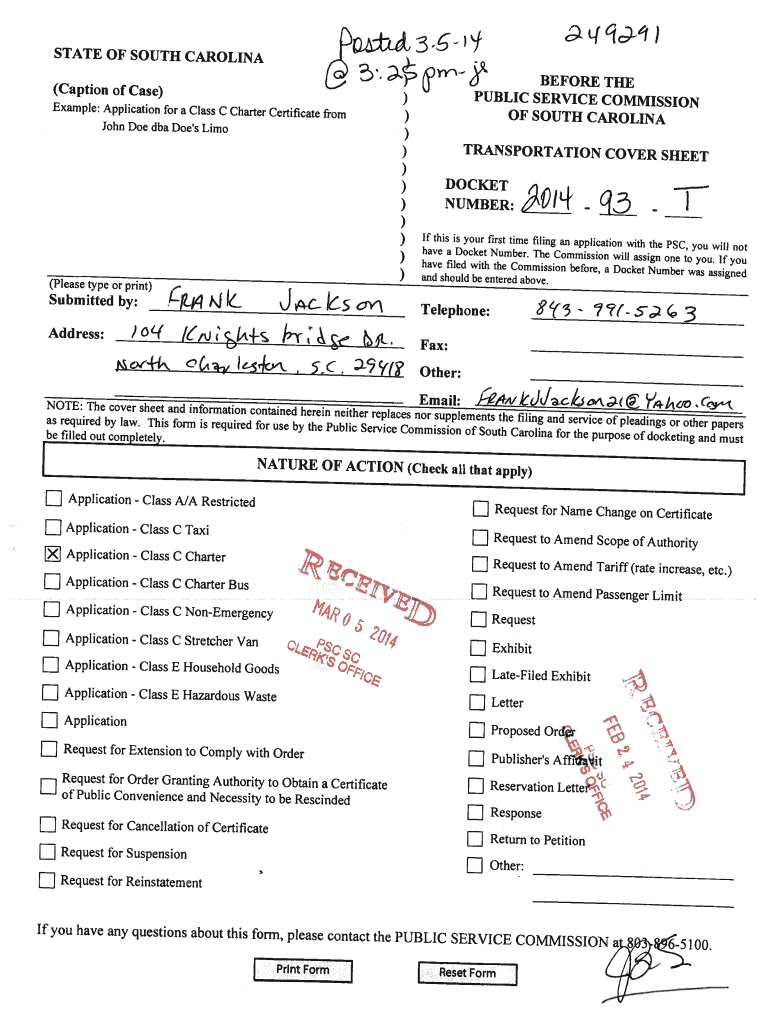 Posted 3-5-14
@ 3:25 pm-js
249291
STATE OF SOUTH CAROLINA
(Caption of Case)
Example: Application for a Class C Charter Certificate from
John Doe dba Doe's Limo
)
)
)
)
)
)
)
)
)
)
)
BEFORE THE
PUBLIC SERVICE COMMISSION
OF SOUTH CAROLINA
TRANSPORTATION COVER SHEET
DOCKET
NUMBER: 2014 - 93 - T
If this is your first time filing an application with the PSC, you will not
have a Docket Number. The Commission will assign one to you. If you
have filed with the Commission before, a Docket Number was assigned
and should be entered above.
(Please type or print)
Submitted by: FRANK JACKSON
Address: 104 Knights bridge DR.
North Charleston, S.C. 29418
Telephone: 843-991-5263
Fax:
Other:
Email: FRANKJJackson21@Yahoo.com
NOTE: The cover sheet and information contained herein neither replaces nor supplements the filing and service of pleadings or other papers
as required by law. This form is required for use by the Public Service Commission of South Carolina for the purpose of docketing and must
be filled out completely.
NATURE OF ACTION (Check all that apply)
Application - Class A/A Restricted
Application - Class C Taxi
X Application - Class C Charter
Application - Class C Charter Bus
Application - Class C Non-Emergency
Application - Class C Stretcher Van
Application - Class E Household Goods
Application - Class E Hazardous Waste
Application
Request for Extension to Comply with Order
Request for Order Granting Authority to Obtain a Certificate
of Public Convenience and Necessity to be Rescinded
Request for Cancellation of Certificate
Request for Suspension
Request for Reinstatement
Request for Name Change on Certificate
Request to Amend Scope of Authority
Request to Amend Tariff (rate increase, etc.)
Request to Amend Passenger Limit
Request
Exhibit
Late-Filed Exhibit
Letter
Proposed Order
Publisher's Affidavit
Reservation Letter
Response
Return to Petition
Other:
RECEIVED
MAR 05 2014
PSC SC
CLERK'S OFFICE
RECEIVED
FEB 24 2014
PSC SC
CLERK'S OFFICE
If you have any questions about this form, please contact the PUBLIC SERVICE COMMISSION at 803-896-5100.
Print Form
Reset Form